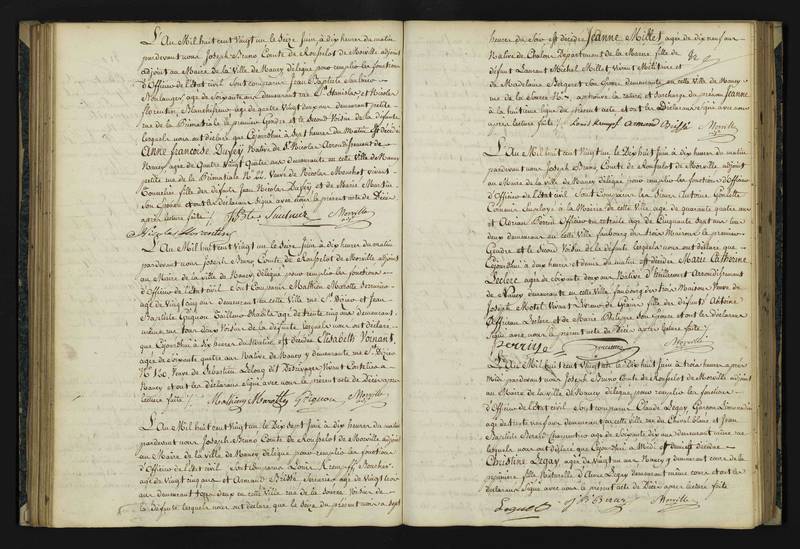 L'An Mil huit cent Vingt un le Seize Juin, à dix heures du matin
pardevant nous Joseph Bruno Comte de Rousselot de Morville adjoint
adjoint au Maire de la Ville de Nancy délégué pour remplir les fonctions
d'Officier de l'état civil Sont comparus Jean Baptiste
Boulanger, agé de Soixante ans, demeurant rue St Stanislas et Nicolas
Florentin, Blanchisseur agé de quatre Vingt deux ans demeurant petite
rue de la Primatiale le premier Gendre et le Second Voisin de la défunte
lesquels nous ont déclaré que Cejourd'hui à Sept heures du Matin est décédée
Anne françoise Dufey Native de St Nicolas Arrondissement de
Nancy, agée de Quatre Vingt Quatre ans demeurante en cette Ville de Nancy
petite rue de la Primatiale No 22. Veuve de Nicolas vivant
Tonnelier fille des défunts Jean Nicolas Dufey et de Marie Martin
Son Epouse et ont les déclarans Signé avec nous le present acte de Décès
après lecture faite /. Morville
L'An Mil huit cent Vingt un le Seize Juin à dix heures du matin
pardevant nous Joseph Bruno Comte de Rousselot de Morville adjoint
au Maire de la Ville de Nancy délégué pour remplir les fonctions
d'Officier de l'état Civil Sont Comparus Mathieu Serrurier
agé de Vingt ans demeurant en cette Ville rue St Dizier et Jean
Baptiste Grignon Tailleur d'habits agé de trente cinq ans demeurant
même rue tous deux Voisins de la défunte lesquels nous ont déclaré
que Cejourd'hui à Six heures du Matin est décédée Elisabeth Voinant,
agée de Soixante quatre ans Native de Nancy y demeurante rue St Dizier
No Veuve de Sebastien Lelong dit Vivant à
Nancy et ont les déclarans Signé avec nous le present acte de Décès après
lecture faite /. Mathieu Grignon Morville
L'An Mil huit cent Vingt un le Dix Sept Juin à dix heures du matin
pardevant nous Joseph Bruno Comte de Rousselot de Morville adjoint
au Maire de la Ville de Nancy délégué pour remplir les fonctions
d'Officier de l'état civil Sont comparus Louis Krempf Boucher
agé de Vingt cinq ans et Armand Brisse agé de Vingt trois
ans demeurant tous deux en cette Ville rue de la Source Voisins de
la défunte lesquels nous ont déclaré que le Seize du present mois à Sept
heures du Soir est décédée Jeanne Millet agée de dix neuf ans
Native de Chalons Département de la Marne fille de
défunt Laurent Michel Millet Vivant Militaire et
de Madelaine Bergeot Son Epouse demeurante en cette Ville de Nancy
rue de la Source No approuvé la rature et Surcharge du prénom Jeanne
à la huitième ligne du present acte et ont les Déclarans Signé avec nous
après lecture faite /. Louis Krempf armand Brisse Morville
L'An Mil huit cent Vingt un le Dix huit Juin à dix heures du matin
pardevant nous Joseph Bruno Comte de Rousselot de Morville adjoint
au Maire de la Ville de Nancy délégué pour remplir les fonctions d'Officier
d'Officier de l'état civil Sont Comparus les Sieurs Antoine
Commis Employé à la Mairie de cette Ville agé de quarante quatre ans
et Adrian Perrin Officier en retraite agé de Cinquante Sept ans tous
deux demeurant en cette Ville faubourg des trois Maisons le premier
Gendre et le Second Voisin de la défunte lesquels nous ont déclaré que
Cejourd'hui à deux heures et demie du matin est décédée Marie Catherine
Leclere agée de Soixante deux ans Native d' Arrondissement
de Nancy demeurante en cette Ville faubourg des trois Maisons Veuve de
Joseph Motel Vivant fille des défunts Antoine
Leclere et de Marie Son Epouse et ont les déclarans
Signé avec nous le present acte de Décès après lecture faite /.
Morville
L'An Mil huit Cent Vingt un le Dix huit Juin à trois heures après
Midi pardevant nous Joseph Bruno Comte de Rousselot de Morville adjoint
au Maire de la Ville de Nancy délégué, pour remplir les fonctions
d'Officier de l'état civil. Sont comparus Claude Legay, Garçon Limonadier
agé de trente neuf ans demeurant en cette Ville rue du Cheval blanc et Jean
Baptiste charpentier agé de Soixante dix ans demeurant même rue
lesquels nous ont déclaré que Cejourd'hui à Midi et demie est décédée
Christine Legay agée de Vingt un ans Née à Nancy y demeurant
première fille Naturelle d'Anne Legay demeurant même et ont les
déclarans Signé avec nous le present acte de Décès après lecture faite
Morville